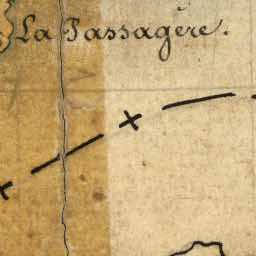 La Passagère.